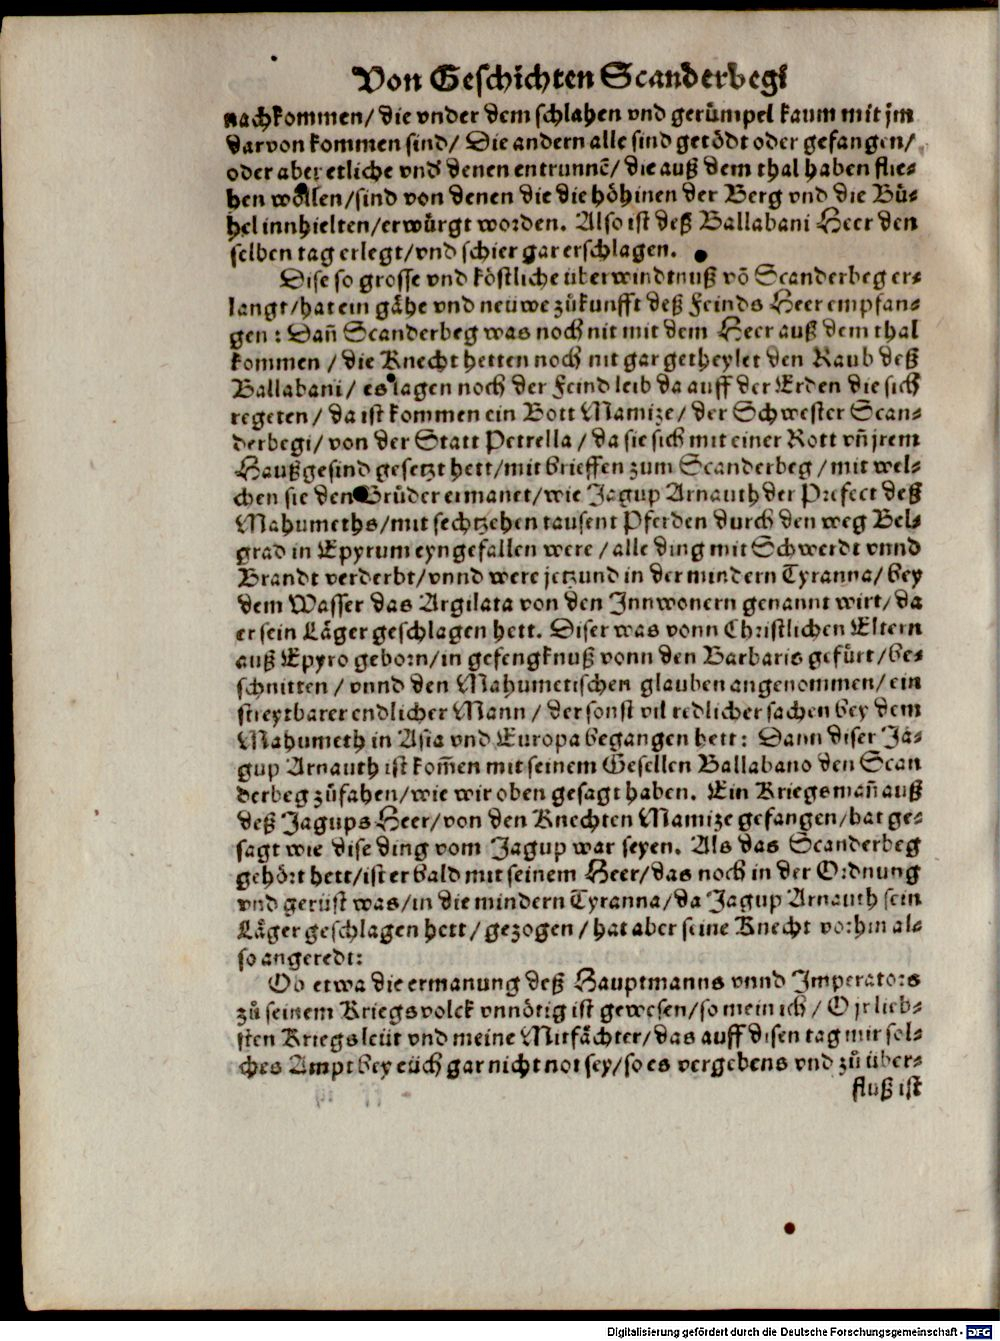 Von Geschichten Scanderbegi
nachkommen/ die vnder dem schlahen vnd gerümpel kaum mit jm
darvon kommen sind/ Die andern alle sind getödt oder gefangen/
oder aber etliche vnd denen entrunnẽ/ die auß dem thal haben flie-
hen wöllen/ sind von denen die die höhinen der Berg vnd die Bü-
hel innhielten/ erwürgt worden. Also ist deß Ballabani Heer den
selben tag erlegt/ vnd schier gar erschlagen.
Dise so grosse vnd köstliche überwindtnuß võ Scanderbeg er-
langt/ hat ein gähe vnd neüwe zůkunfft deß Feinds Heer empfan-
gen: Dañ Scanderbeg was noch nit mit dem Heer auß dem thal
kommen/ die Knecht hetten noch nit gar getheylet den Raub deß
Ballabani/ es lagen noch der Feind leib da auff der Erden die sich
regeten/ da ist kommen ein Bott Mamize/ der Schwester Scan-
derbegi/ von der Statt Petrella/ da sie sich mit einer Rott vñ jrem
Haußgesind gesetzt hett/ mit brieffen zum Scanderbeg/ mit wel-
chen sie den Brůder ermanet/ wie Jagup Arnauth der Prefect deß
Mahumeths/ mit sechtzehen tausent Pferden durch den weg Bel-
grad in Epyrum eyngefallen were/ alle ding mit Schwerdt vnnd
Brandt verderbt/ vnnd were jetzund in der mindern Tyranna/ bey
dem Wasser das Argilata von den Innwonern genannt wirt/ da
er sein Läger geschlagen hett. Diser was vonn Christlichen Eltern
auß Epyro geborn/ in gefengknuß vonn den Barbaris gefürt/ be-
schnitten/ vnnd den Mahumetischen glauben angenommen/ ein
streytbarer endlicher Mann/ der sonst vil redlicher sachen bey dem
Mahumeth in Asia vnd Europa begangen hett: Dann diser Ja-
gup Arnauth ist kom̃en mit seinem Gesellen Ballabano den Scan
derbeg zůfahen/ wie wir oben gesagt haben. Ein Kriegsmañ auß
deß Jagups Heer/ von den Knechten Mamize gefangen/ hat ge-
sagt wie dise ding vom Jagup war seyen. Als das Scanderbeg
gehört hett/ ist er bald mit seinem Heer/ das noch in der Ordnung
vnd gerüst was/ in die mindern Tyranna/ da Jagup Arnauth sein
Läger geschlagen hett/ gezogen/ hat aber seine Knecht vorhin al-
so angeredt:
Ob etwa die ermanung deß Hauptmanns vnnd Imperators
zů seinem Kriegsvolck vnnötig ist gewesen/ so mein ich/ O jr lieb-
sten Kriegsleüt vnd meine Mitfächter/ das auff disen tag mir sol-
ches Ampt bey eüch gar nicht not sey/ so es vergebens vnd zů über-
fluß ist
Digitalisierung gefördert durch die Deutsche Forschungsgemeinschaft - DFG